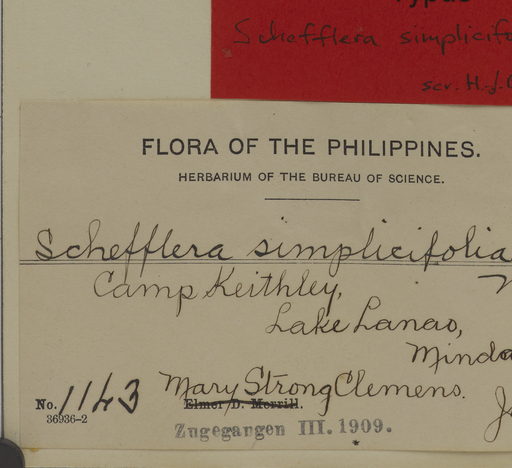 Typus
Schefflera simplicifo
scr. H.-J.
FLORA OF THE PHILIPPINES.
HERBARIUM OF THE BUREAU OF SCIENCE.
Schefflera simplicifolia
Camp Keithley,
Lake Lanao,
Minda
Mary Strong Clemens.
No. 1143 Elmer D. Merrill.
36936-2
Zugegangen III. 1909.